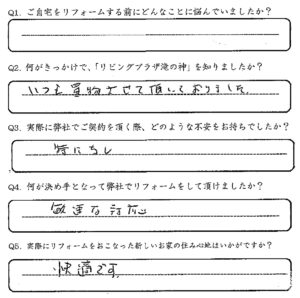 Q1. ご自宅をリフォームする前にどんなことに悩んでいましたか？
Q2. 何がきっかけで、「リビングプラザ滝の神」を知りましたか？
いつも買物させて頂いておりました
Q3. 実際に弊社でご契約を頂く際、どのような不安をお持ちでしたか？
特になし
Q4. 何が決め手となって弊社でリフォームをして頂けましたか？
敏速な対応
Q5. 実際にリフォームをおこなった新しいお家の住み心地はいかがですか？
快適です。